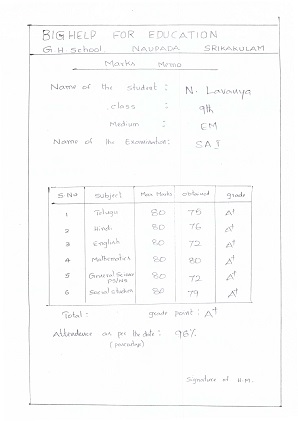 BIG HELP FOR EDUCATION
G.H. School. NAUPADA SRIKAKULAM
Marks Memo
Name of the student : N. Lavanya
class : 9th
Medium : EM
Name of the Examination: SA I
S.No Subject Max Marks obtained grade
1 Telugu 80 75 A+
2 Hindi 80 76 A+
3 English 80 72 A+
4 Mathematics 80 80 A+
5 General Science PS/NS 80 72 A+
6 Social studies 80 79 A+
Total: grade point : A+
Attendence as per the date : 96%
(percentage)
Signature of H.M.